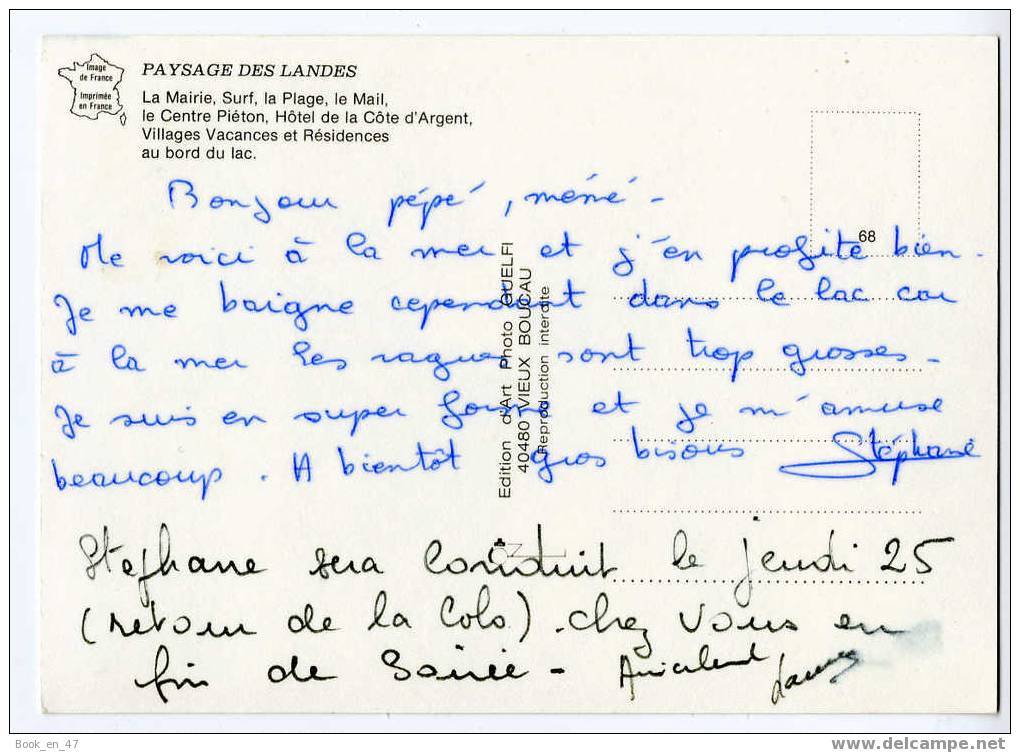 Image
de France
Imprimée
en France
PAYSAGE DES LANDES
La Mairie, Surf, la Plage, le Mail,
le Centre Piéton, Hôtel de la Côte d'Argent,
Villages Vacances et Résidences
au bord du lac.
68
Bonjour pépé, mémé -
Me voici à la mer et j'en profite bien.
Je me baigne cependant dans le lac car
à la mer les vagues sont trop grosses -
Je suis en super forme et je m'amuse
beaucoup. A bientôt gros bisous Stéphane
Edition d'Art Photo GUELFI
40480 VIEUX BOUCAU
Reproduction interdite
Stéphane sera conduit le jeudi 25
(retour de la Colo). chez vous en
fin de soirée - Amicalement
Book_en_47
www.delcampe.net